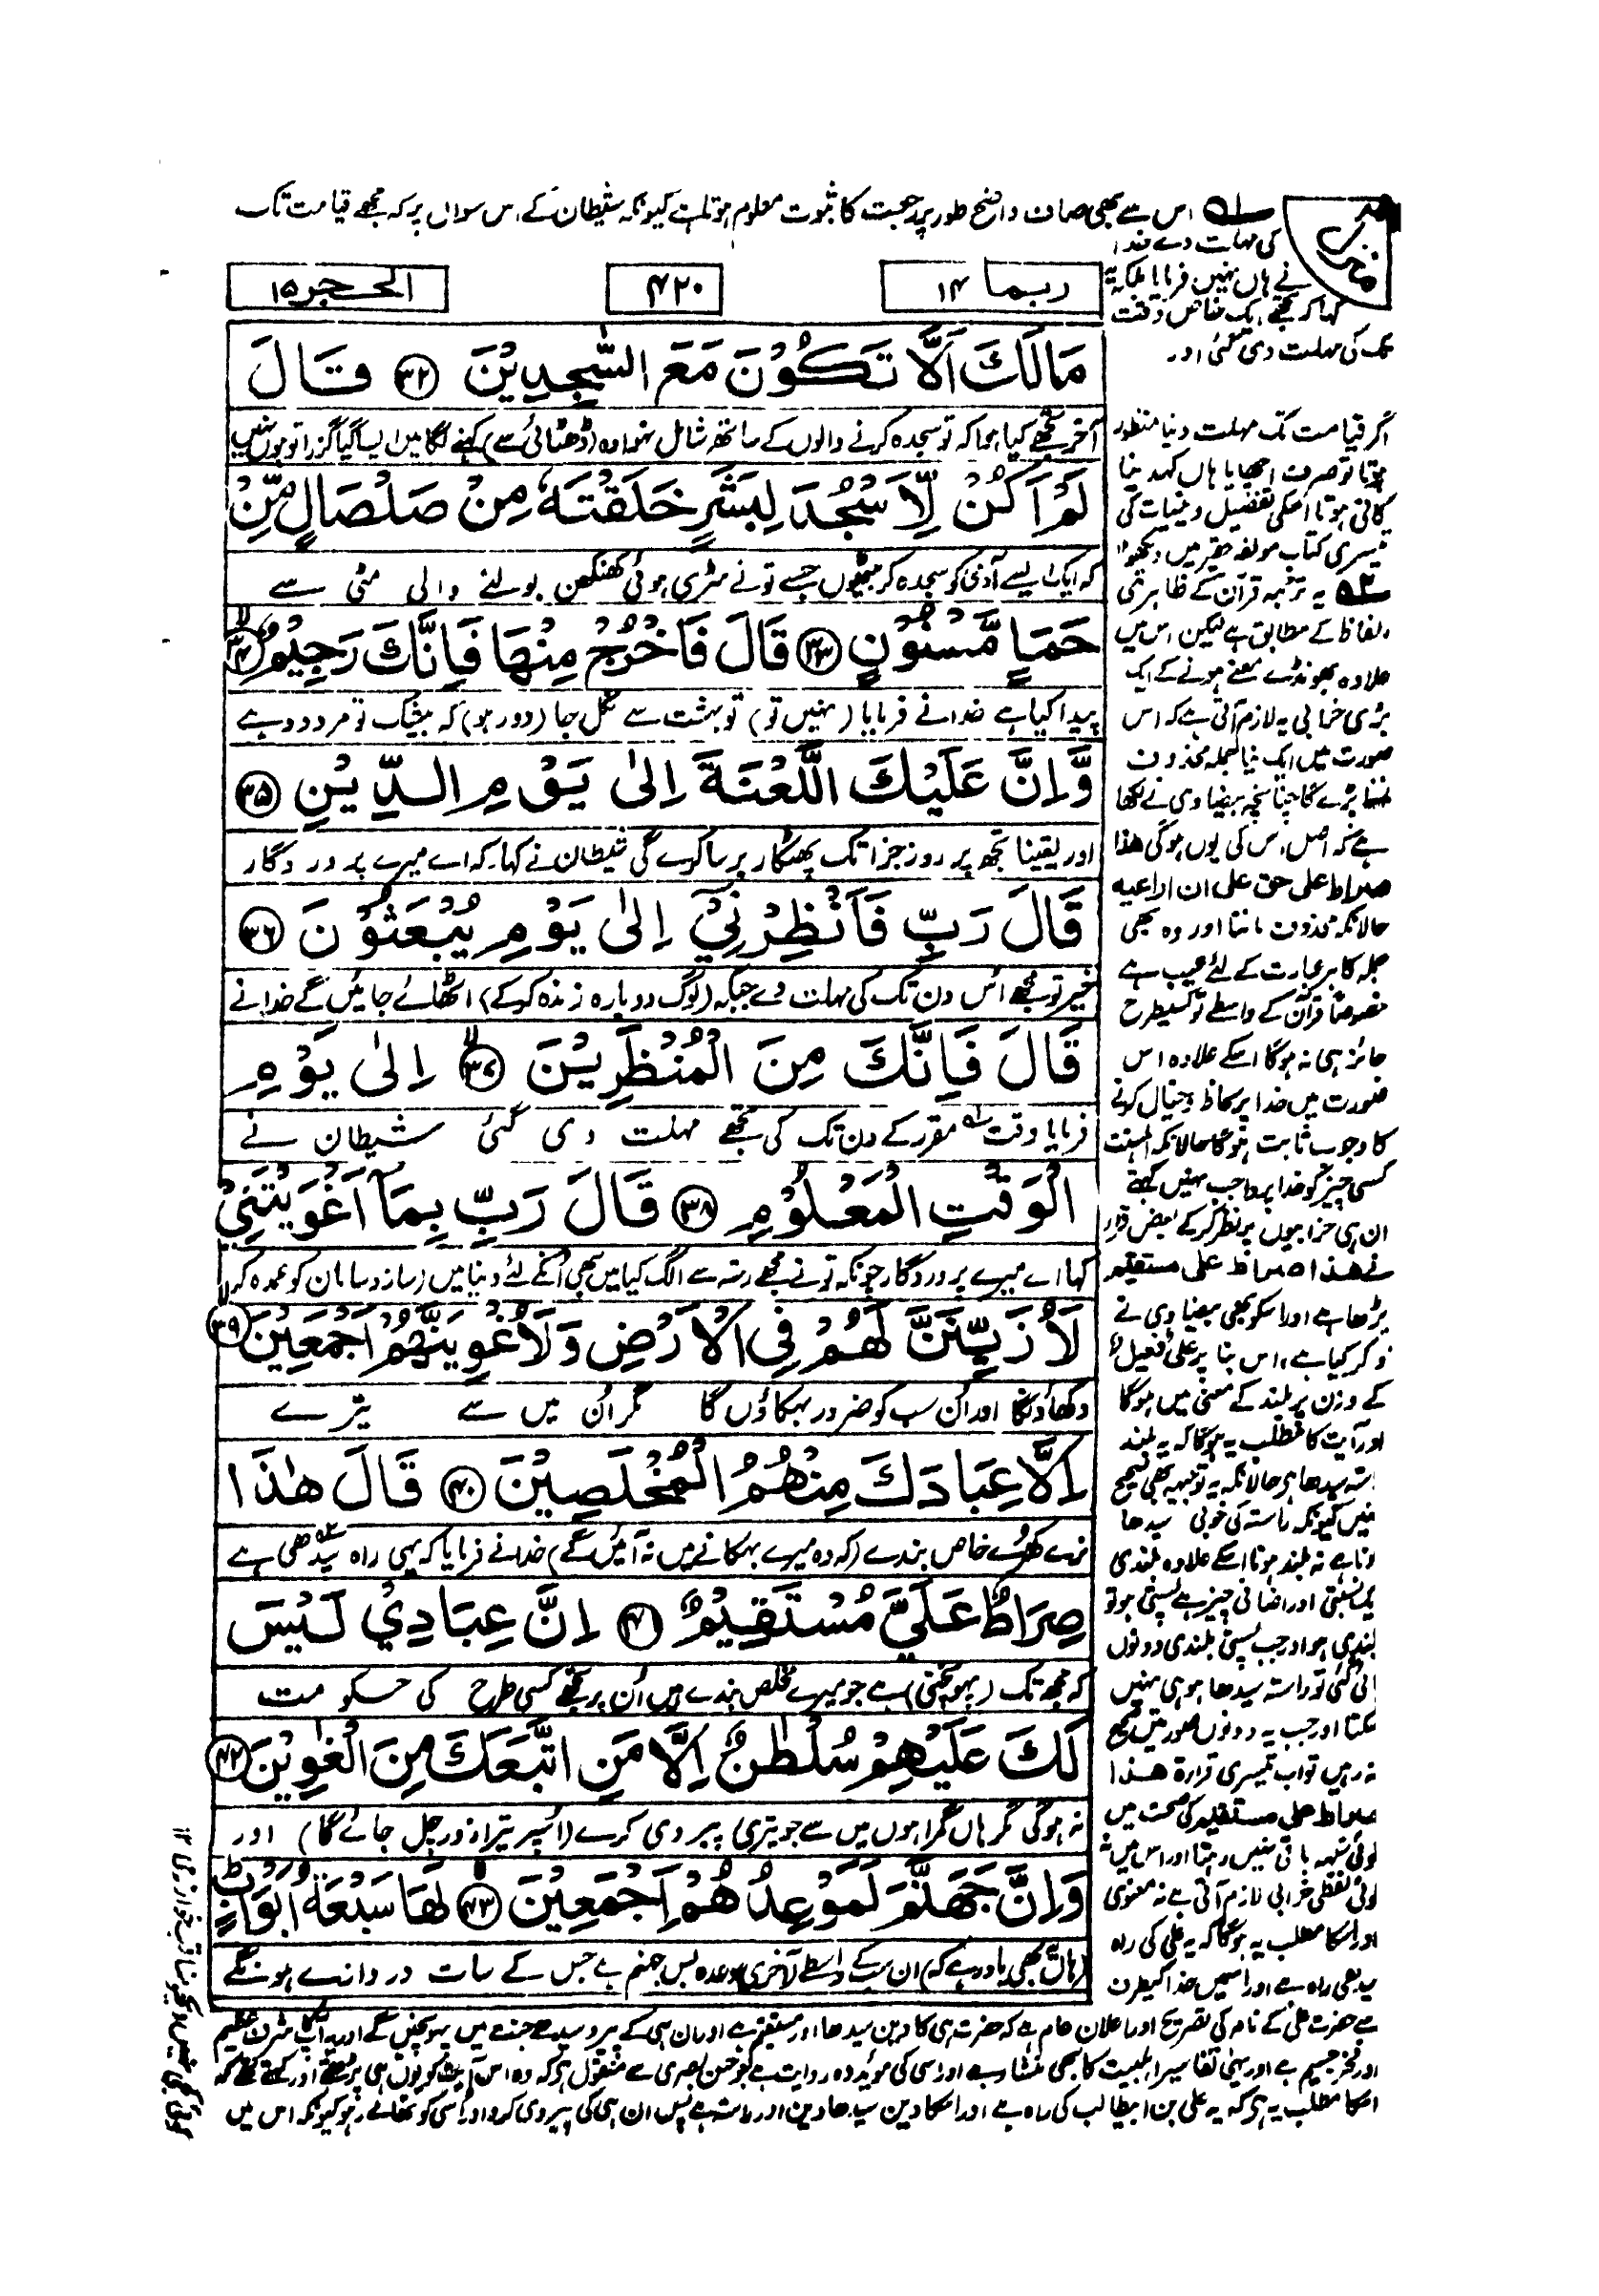 ۱ اس سے بھی صاف واضح طور پر رجعت کا ثبوت معلوم ہوتا ہے کیونکہ شیطان کے اس سوال پر کہ مجھے قیامت تک
کی مہلت دے خدا
نے ہاں نہیں فرمایا بلکہ یہ
کہا کہ تجھے ایک خاص وقت
تک کی مہلت دی گئی اور
ربما ۱۴
۴۲۰
الحجر ۱۵
مَا لَكَ اَلَّا تَكُوْنَ مَعَ السّٰجِدِيْنَ ﴿۳۲﴾ قَالَ
آخر تجھے کیا ہوا کہ تو سجدہ کرنے والوں کے ساتھ شامل نہ ہوا وہ (ڈھٹائی سے) کہنے لگا میں ایسا گیا گزرا تو ہوں نہیں
لَمْ اَكُنْ لِّاَسْجُدَ لِبَشَرٍ خَلَقْتَهٗ مِنْ صَلْصَالٍ مِّنْ
کہ ایک ایسے آدمی کو سجدہ کر بیٹھوں جسے تو نے سڑی ہوئی کھنکھن بولنے والی مٹی سے
حَمَاٍ مَّسْنُوْنٍ ﴿۳۳﴾ قَالَ فَاخْرُجْ مِنْهَا فَاِنَّكَ رَجِيْمٌ ﴿۳۴﴾
پیدا کیا ہے خدا نے فرمایا (نہیں تو) تو بہشت سے نکل جا (دور ہو) کہ بیشک تو مردود ہے
وَّاِنَّ عَلَيْكَ اللَّعْنَةَ اِلٰى يَوْمِ الدِّيْنِ ﴿۳۵﴾
اور یقینا تجھ پر روز جزا تک پھٹکار برسا کرے گی شیطان نے کہا۔ کہ اے میرے پروردگار
قَالَ رَبِّ فَاَنْظِرْنِيْٓ اِلٰى يَوْمِ يُبْعَثُوْنَ ﴿۳۶﴾
خیر تو مجھے اس دن تک کی مہلت دے جبکہ (لوگ دوبارہ زندہ کر کے) اٹھائے جائیں گے خدا نے
قَالَ فَاِنَّكَ مِنَ الْمُنْظَرِيْنَ ﴿۳۷﴾ اِلٰى يَوْمِ
فرمایا وقت ۱ مقرر کے دن تک کی تجھے مہلت دی گئی شیطان نے
الْوَقْتِ الْمَعْلُوْمِ ﴿۳۸﴾ قَالَ رَبِّ بِمَآ اَغْوَيْتَنِيْ
کہا اے میرے پروردگار چونکہ تو نے مجھے رستہ سے الگ کیا میں بھی اُنکے لئے دنیا میں (ساز و سامان کو) عمدہ کر
لَاُزَيِّنَنَّ لَهُمْ فِى الْاَرْضِ وَلَاُغْوِيَنَّهُمْ اَجْمَعِيْنَ ﴿۳۹﴾
دکھاؤنگا اور ان سب کو ضرور بہکاؤں گا مگر اُن میں سے تیرے
اِلَّا عِبَادَكَ مِنْهُمُ الْمُخْلَصِيْنَ ﴿۴۰﴾ قَالَ هٰذَا
نرے کھرے خاص بندے (کہ وہ میرے بہکانے میں نہ آئیں گے) خدا نے فرمایا کہ یہی راہ سیدھی ۲ ہے
صِرَاطٌ عَلَيَّ مُسْتَقِيْمٌ ﴿۴۱﴾ اِنَّ عِبَادِيْ لَيْسَ
کہ مجھ تک (پہونچتی) ہے جو میرے مخلص بندے ہیں اُن پر تجھے کسی طرح کی حکومت
لَكَ عَلَيْهِمْ سُلْطٰنٌ اِلَّا مَنِ اتَّبَعَكَ مِنَ الْغٰوِيْنَ ﴿۴۲﴾
نہ ہوگی مگر ہاں گمراہوں میں سے جو تیری پیروی کرے (اُسپر تیرا زور چل جائے گا) اور
وَاِنَّ جَهَنَّمَ لَمَوْعِدُهُمْ اَجْمَعِيْنَ ﴿۴۳﴾ لَهَا سَبْعَةُ اَبْوَابٍ
(ہاں یہ بھی یاد رہے کہ) ان سب کے واسطے (آخری) وعدہ بس جہنم ہے جس کے سات دروازے ہونگے
اگر قیامت تک مہلت دنیا منظور
ہوتا تو صرف اچھا یا ہاں کہدینا
کافی ہوتا اسکی تفصیل دینیات کی
تیسری کتاب مولفہ حقیر میں دیکھو ۱۲
۲ یہ ترجمہ قرآن کے ظاہری
الفاظ کے مطابق ہے لیکن اس میں
علاوہ بھونڈے معنے ہونے کے ایک
بڑی خرابی یہ لازم آتی ہے کہ اس
صورت میں ایک نیا جملہ محذوف
ماننا پڑے گا چنانچہ بیضاوی نے لکھا
ہے کہ اصل اس کی یوں ہوگی هذا
صراط علی حق علی ان اراعیه
حالانکہ محذوف ماننا اور وہ بھی
جملہ کا ہر عبارت کے لئے عیب ہے
خصوصاً قرآن کے واسطے تو کسیطرح
جائز ہی نہ ہوگا اسکے علاوہ اس
صورت میں خدا پر لحاظ و خیال کرنے
کا وجوب ثابت ہوگا حالانکہ اہلسنت
کسی چیز کو خدا پر واجب نہیں کہتے
ان ہی خرابیوں پر نظر کر کے بعض قرار
نے هذا صراط علی مستقیم
پڑھا ہے اور اسکو بھی بیضاوی نے
ذکر کیا ہے، اس بنا پر علی فعیل
کے وزن پر بلند کے معنی میں ہوگا
اور آیت کا مطلب یہ ہوگا کہ یہ بلند
راستہ سیدھا ہے حالانکہ یہ توجیہ بھی صحیح
نہیں کیونکہ راستہ کی خوبی سیدھا
ہونا ہے نہ بلند ہونا اسکے علاوہ بلندی
ایک نسبتی اور اضافی چیز ہے پستی ہو تو
بلندی ہو اور جب پستی بلندی دونوں
پائی گئی تو راستہ سیدھا ہو ہی نہیں
سکتا اور جب یہ دونوں صورتیں صحیح
نہ رہیں تو اب تیسری قرارۃ هذا
صراط علی مستقیم کی صحت میں
کوئی شبہہ باقی نہیں رہتا اور اس میں نہ
کوئی لفظی خرابی لازم آتی ہے نہ معنوی
اور اسکا مطلب یہ ہوگا کہ یہ علی کی راہ
سیدھی راہ ہے اور اسمیں خدا کیطرف
سے حضرت علی کے نام کی تصریح اور اعلان عام ہے کہ حضرت ہی کا دین سیدھا اور مستقیم ہے اور ان ہی کے پیرو سیدھے جنت میں پہونچیں گے اور یہ آپکا شرف عظیم
اور فخر جسیم ہے اور یہی تفاسیر اہلبیت کا بھی منشا ہے اور اسی کی موئید وہ روایت ہے جو حسن بصری سے منقول ہے کہ وہ اس آیت کو یوں ہی پڑھتے اور کہتے تھے کہ
اسکا مطلب یہ ہے کہ یہ علی بن ابیطالب کی راہ ہے اور اسکا دین سیدھا دین اور راستہ ہے پس ان ہی کی پیروی کرو اور اسی کو تھامے رہو کیونکہ اس میں
کوئی کجی نہیں دیکھو مناقب خوارزمی ۱۲